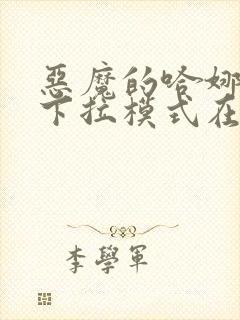 惡魔的哈娜
下拉模式在
李學軍